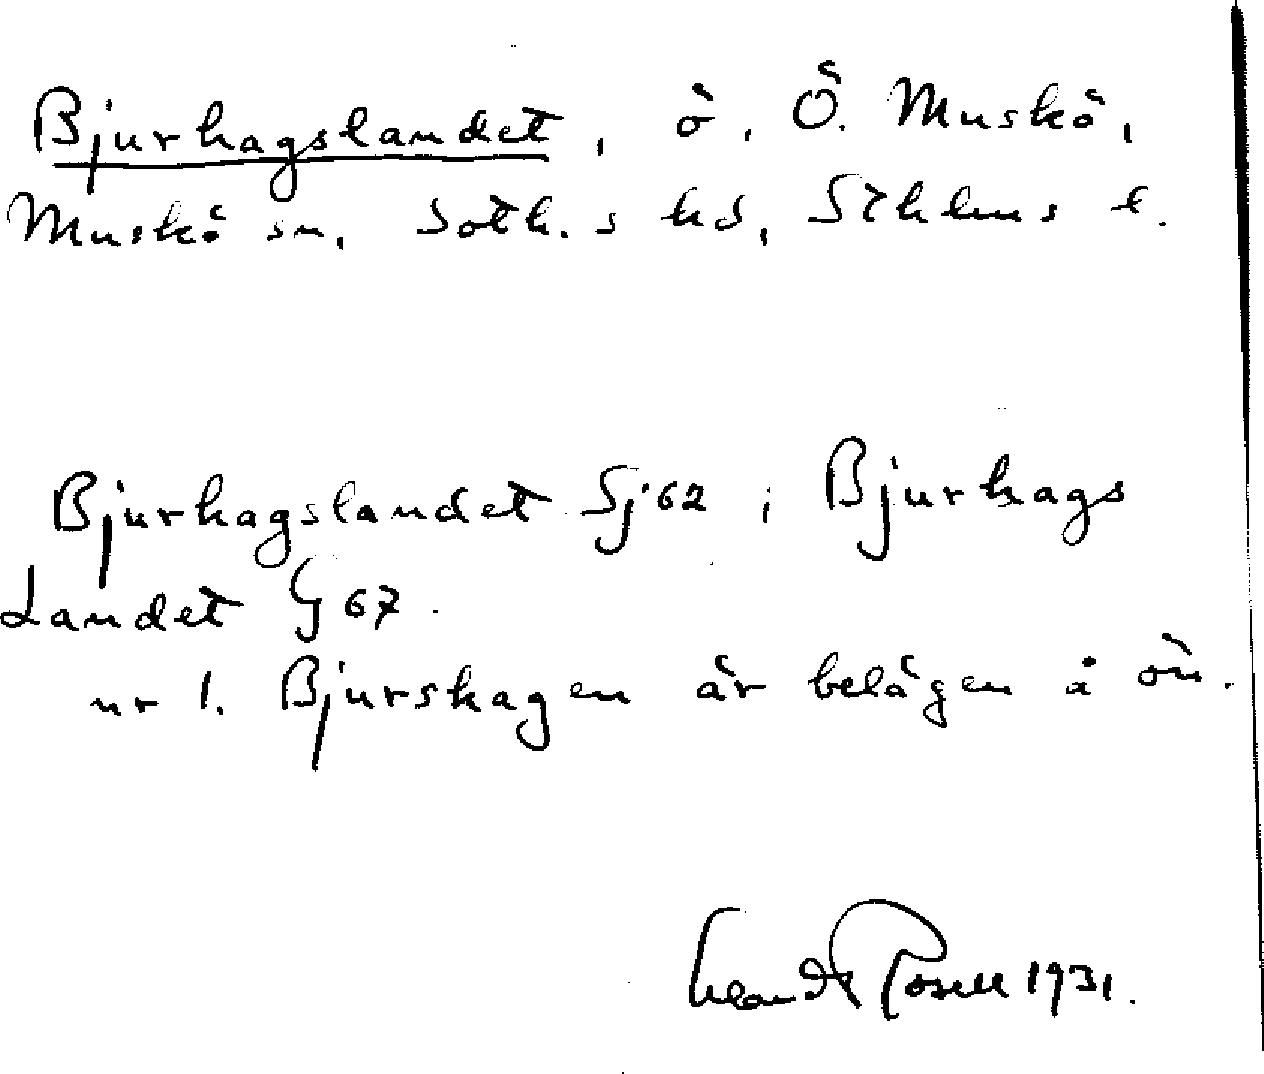 Bjurhagslandet, ö, Ö. Muskö,
Muskö sn, Soth.s hd, Sthlms l.
Bjurhagslandet Sj 62 ; Bjurhags
Landet G 67.
nr 1. Bjurshagen är belägen å ön.
Rosell 1931.